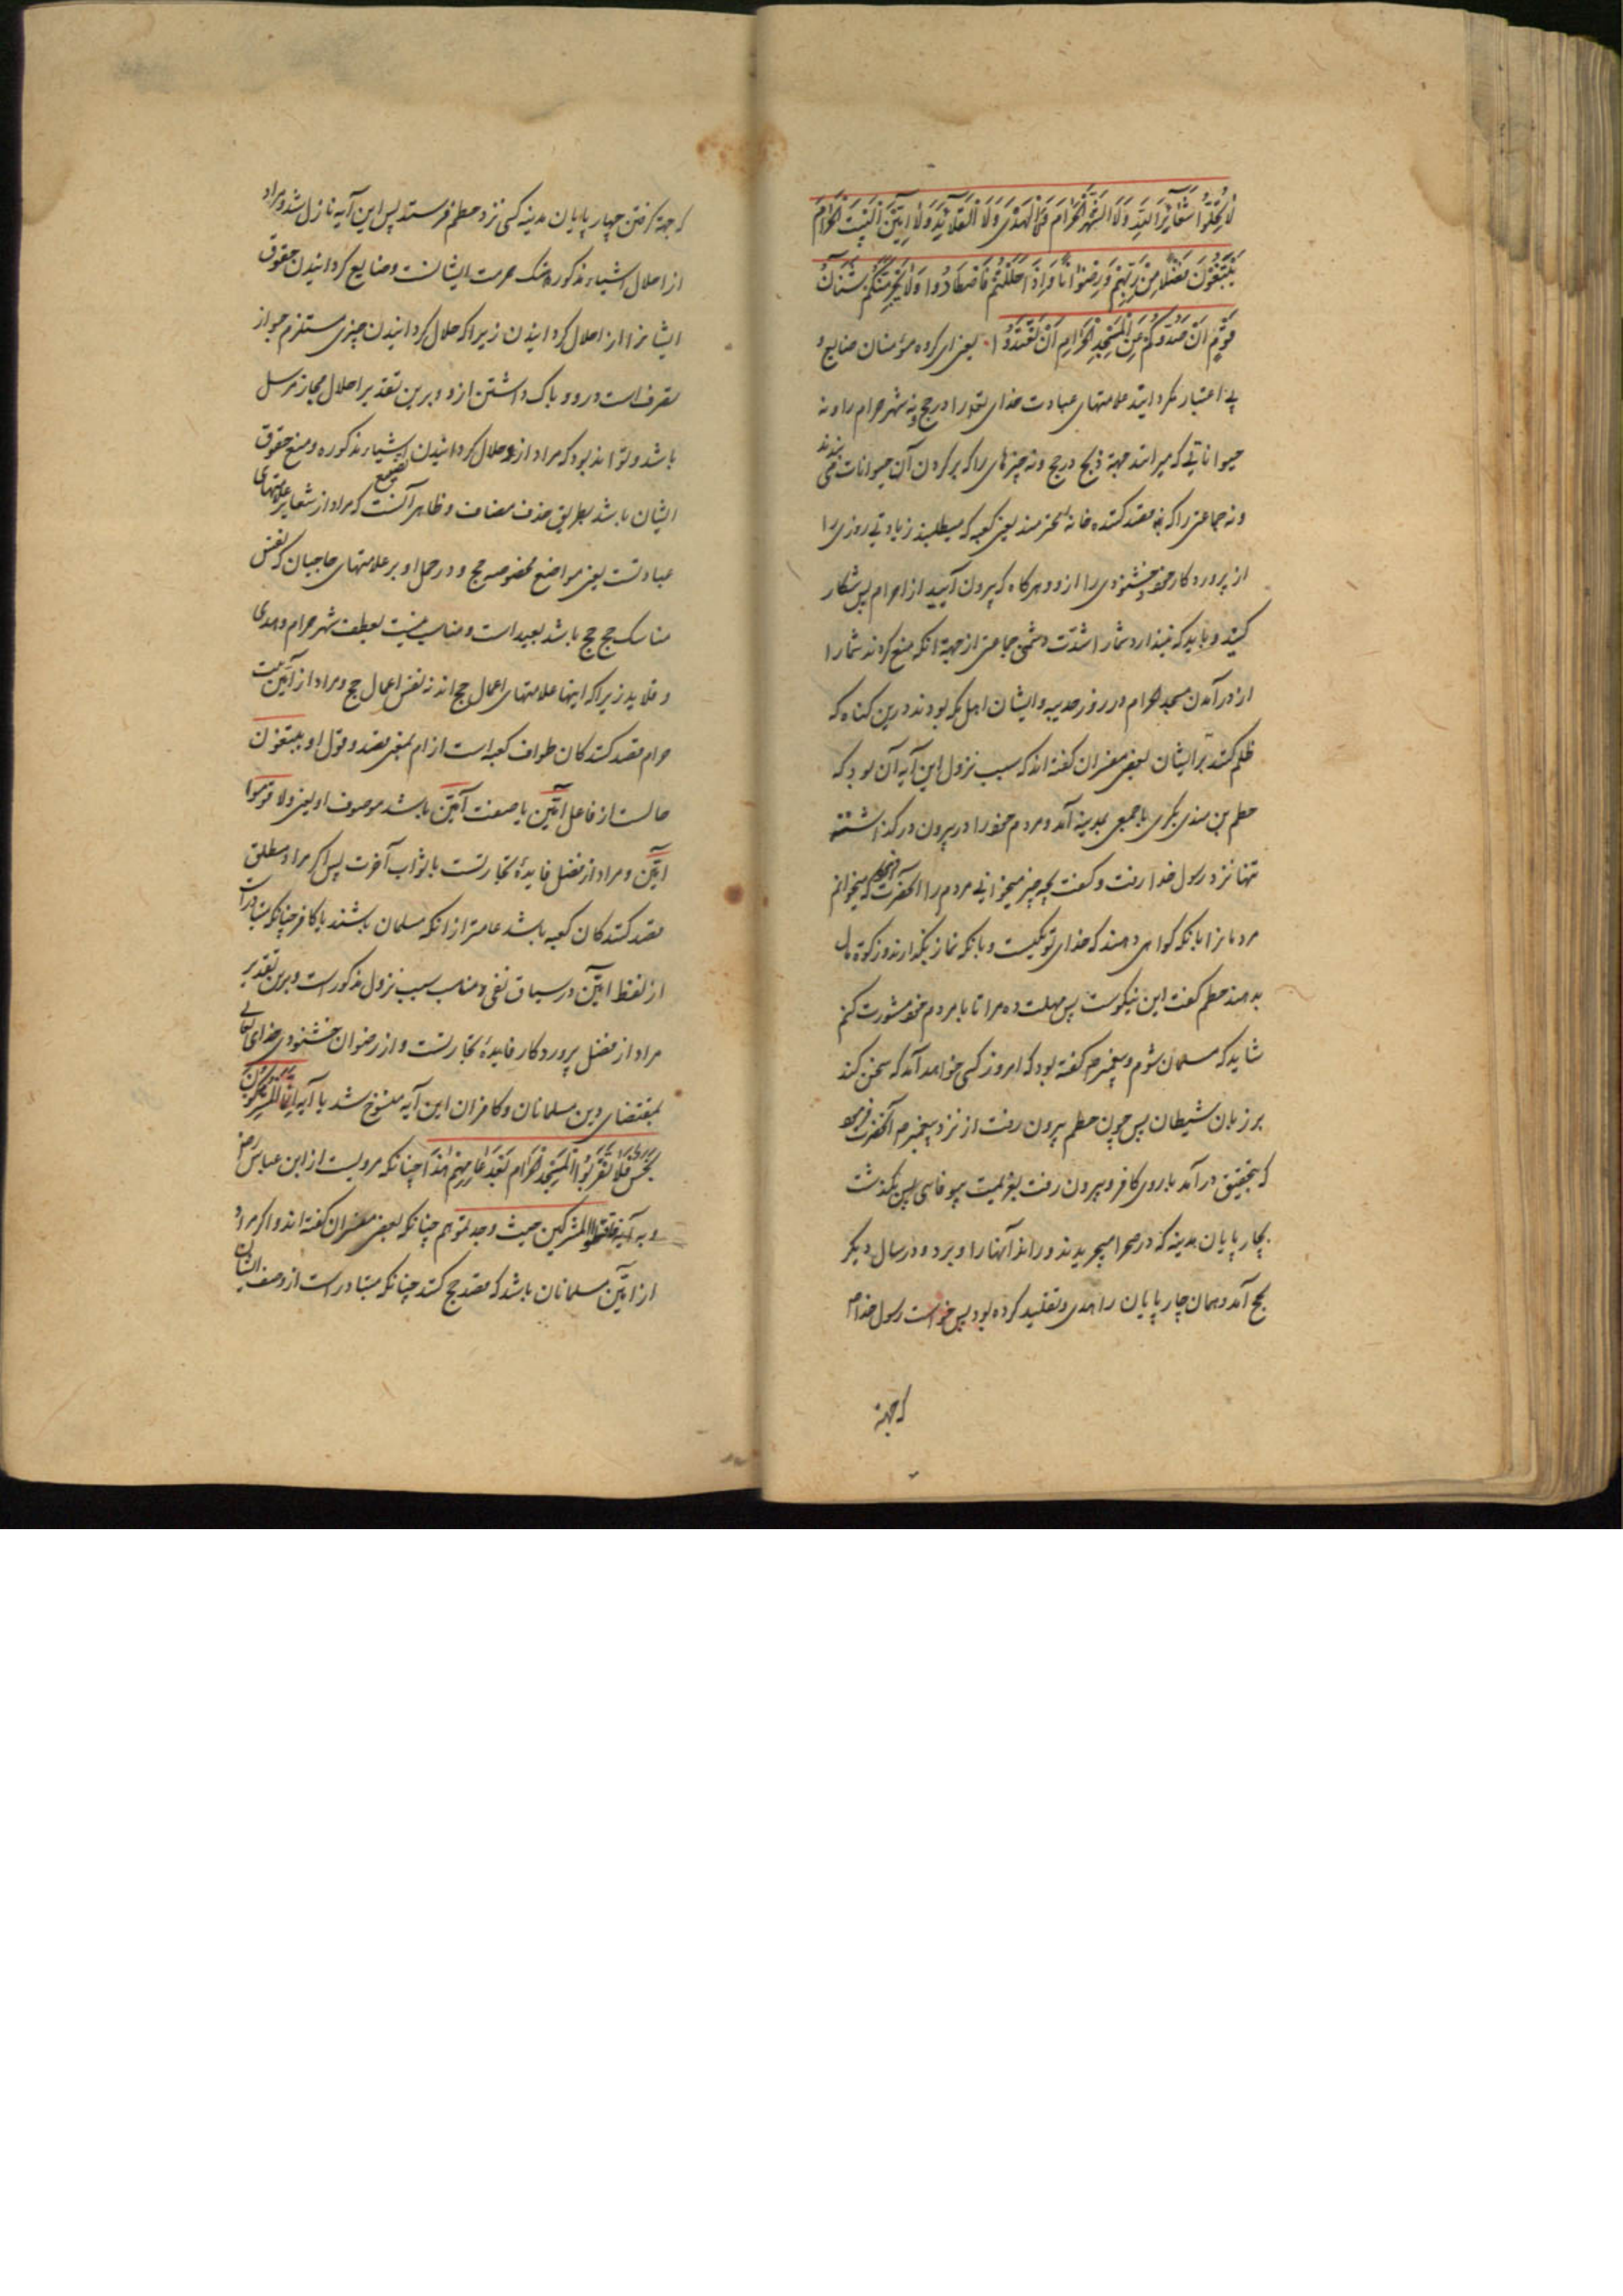 لَا تُحِلُّوا شَعَائِرَ اللَّهِ وَلَا الشَّهْرَ الْحَرَامَ وَلَا الْهَدْيَ وَلَا الْقَلَائِدَ وَلَا آمِّينَ الْبَيْتَ الْحَرَامَ
يَبْتَغُونَ فَضْلًا مِنْ رَبِّهِمْ وَرِضْوَانًا وَإِذَا حَلَلْتُمْ فَاصْطَادُوا وَلَا يَجْرِمَنَّكُمْ شَنَآنُ
قَوْمٍ أَنْ صَدُّوكُمْ عَنِ الْمَسْجِدِ الْحَرَامِ أَنْ تَعْتَدُوا یعنی ای کروه مؤمنان ضایع و
بی اعتبار مکردانید علامتهای عبادت خدای تعورا در حج ونه شهر حرام را ونه
حیواناتی که میرانند جهة ذبح در حج ونه چیزهای را که بر کردن آن حیوانات می بندند
ونه جماعتی را که قصد کننده خانه یعنی کعبه که میطلبند زیادتی روزی را
از پروردکار خود وخشنودی را ازو وهرکاه که بیرون آیید از احرام پس شکار
کنید و باید که نیندازد شمارا شدّت دشمنی جماعتی از جهة انکه منع کردند شمارا
از درآمدن مسجد حرام در روز حدیبیه وایشان اهل مکه بودند درین کناه که
ظلم کنید بر ایشان بعضی مفسران کفته اند که سبب نزول این آیه آن بود که
حطم بن هندی بکری با جمعی بمدینه آمد ومردم خودرا در بیرون در کذاشته
تنها نزد رسول خدا رفت وکفت بچه چیز میخوانی مردم را آنحضرت فرمود که میخوانم
مردمانرا بانکه کواهی دهند که خدای تو یکیست وبانکه نماز بکذارند وزکوة مال
بدهند حطم کفت این نیکوست پس مهلت ده مرا تا با مردم خود مشورت کنم
شاید که مسلمان شوم وپیغمبر م کفته بود که امروز کسی خواهد آمد که سخن کند
بر زبان شیطان پس چون حطم بیرون رفت از نزد پیغمبر م آنحضرت فرمود
که بتحقیق درآمد باروی کافر وبیرون رفت بعزیمت بیوفایی پس بکذشت
بچارپایان مدینه که در صحرا میچریدند وراند آنهارا وبرد ودر سال دیکر
بحج آمد وهمان چارپایان را هدی وتقلید کرده بود پس خواست رسول خدا م
که جهة
که جهة کرفتن چهارپایان مدینه کسی نزد حطم فرستد پس این آیه نازل شد ومراد
از احلال اشیاء مذکوره هتک حرمت ایشانست وضایع کردانیدن حقوق
ایشانرا از احلال کردانیدن زیرا که حلال کردانیدن چیزی مستلزم جواز
تصرف است درو وباک داشتن ازو وبرین تقدیر احلال مجاز مرسل
باشد وتواند بود که مراد از حلال کردانیدن اشیاء مذکوره ومنع حقوق
ایشان باشد بطریق حذف مضاف وظاهر آنست که مراد از شعایر علامتهای
عبادتست یعنی مواضع مخصوصه حج ودر حمل او بر علامتهای حاجیان که نفس
مناسک حج باشد بعید است ومناسب نیست بعطف شهر حرام وهدی
وقلاید زیرا که اینها علامتهای اعمال حج اند نه نفس اعمال حج ومراد از آمّین بیت
حرام قصد کنندکان طواف کعبه است از ام بمعنی قصد وقول او یبتغون
حالست از فاعل آمّین یا صفت آمّین باشد موصوف او یعنی ولا قوما
آمّین ومراد از فضل فایدهٔ تجارتست یا ثواب آخرت پس اکر مراد مطلق
قصد کنندکان کعبه باشد عامتر از انکه مسلمان باشند یا کافر چنانکه متبادر است
از لفظ آمّین در سیاق نفی ومناسب سبب نزول مذکور است وبرین تقدیر
مراد از فضل پروردکار فایدهٔ تجارتست واز رضوان خشنودی خدای تعالی
بمقتضای دین مسلمانان وکافران این آیه منسوخ شد با آیه انما المشرکون
نجس فلا تقربوا المسجد الحرام بعد عامهم هذا چنانکه مرویست از ابن عباس رض
وبه آیه فاقتلوا المشرکین حیث وجدتموهم چنانکه بعضی مفسران کفته اند واکر مراد
از آمّین مسلمانان باشد که قصد حج کنند چنانکه متبادر است از وصف ایشان